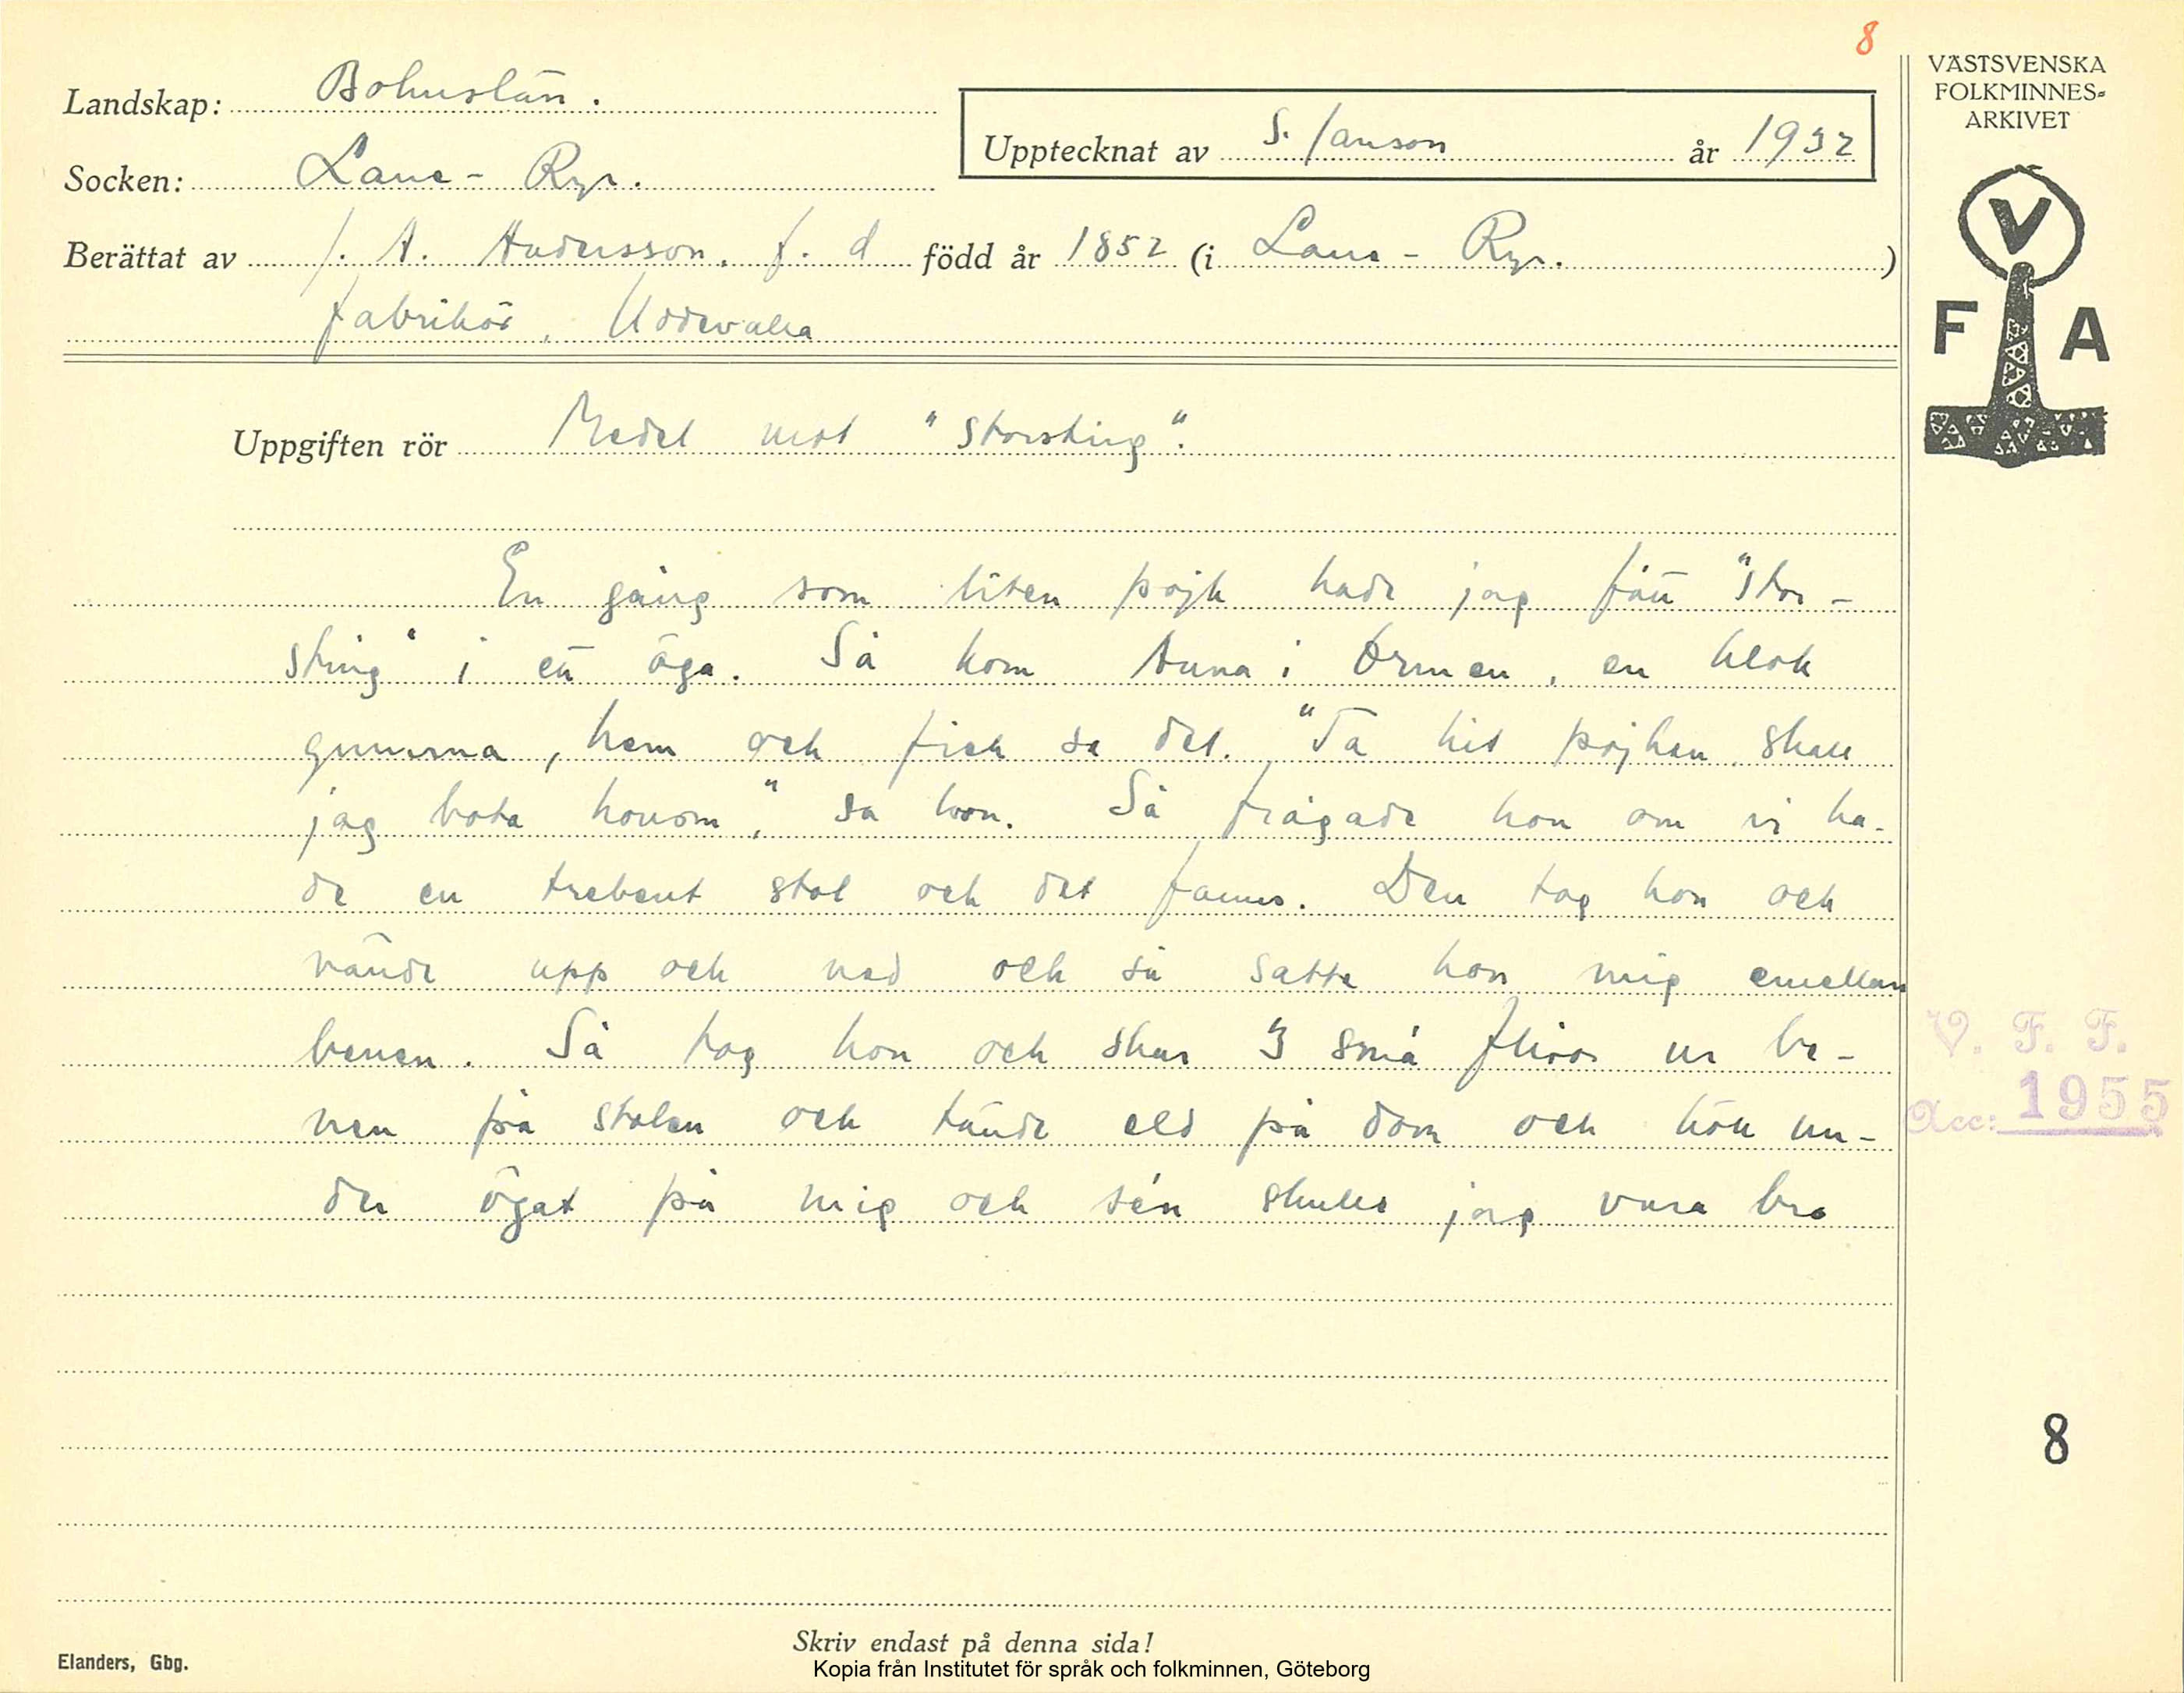 8
Landskap: Bohuslän.
Socken: Lane-Ryr.
Upptecknat av S. Janson år 1932
Berättat av J. A. Andersson, f. d född år 1852 (i Lane-Ryr.)
fabrikör, Uddevalla
VÄSTSVENSKA
FOLKMINNES=
ARKIVET
V
F A
Uppgiften rör Medel mot "storsting".
En gång som liten pojk hade jag fått "stor-
sting" i ett öga. Så kom Anna i Ormen, en klok
gumma, hem och fick se det. "Ta hit pojken skall
jag bota honom," sa hon. Så frågade hon om vi ha-
de en trebent stol och det fanns. Den tog hon och
vände upp och ned och så satte hon mig emellan
benen. Så tog hon och skar 3 små flisor ur be-
nen på stolen och tände eld på dom och höll un-
der ögat på mig och sén skulle jag vara bra
V. F. F.
Acc: 1955
8
Skriv endast på denna sida!
Elanders, Gbg.
Kopia från Institutet för språk och folkminnen, Göteborg